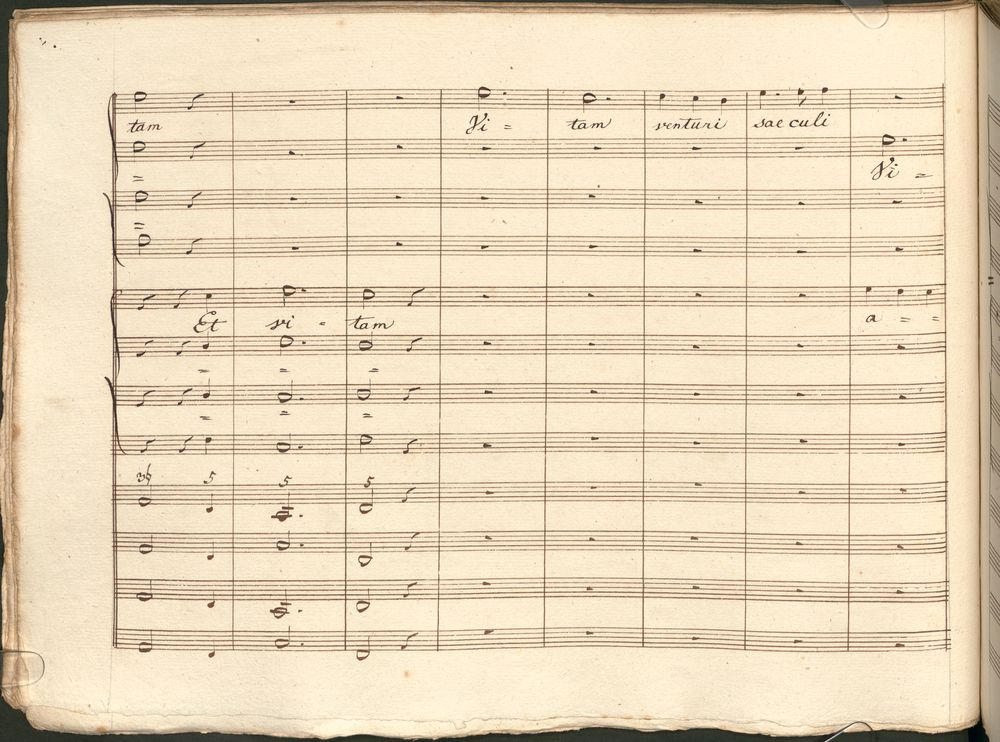 tam Vi = tam venturi saeculi
= Vi =
=
Et vi - tam a = =
= = =
= = =
3♮ 5 5 5